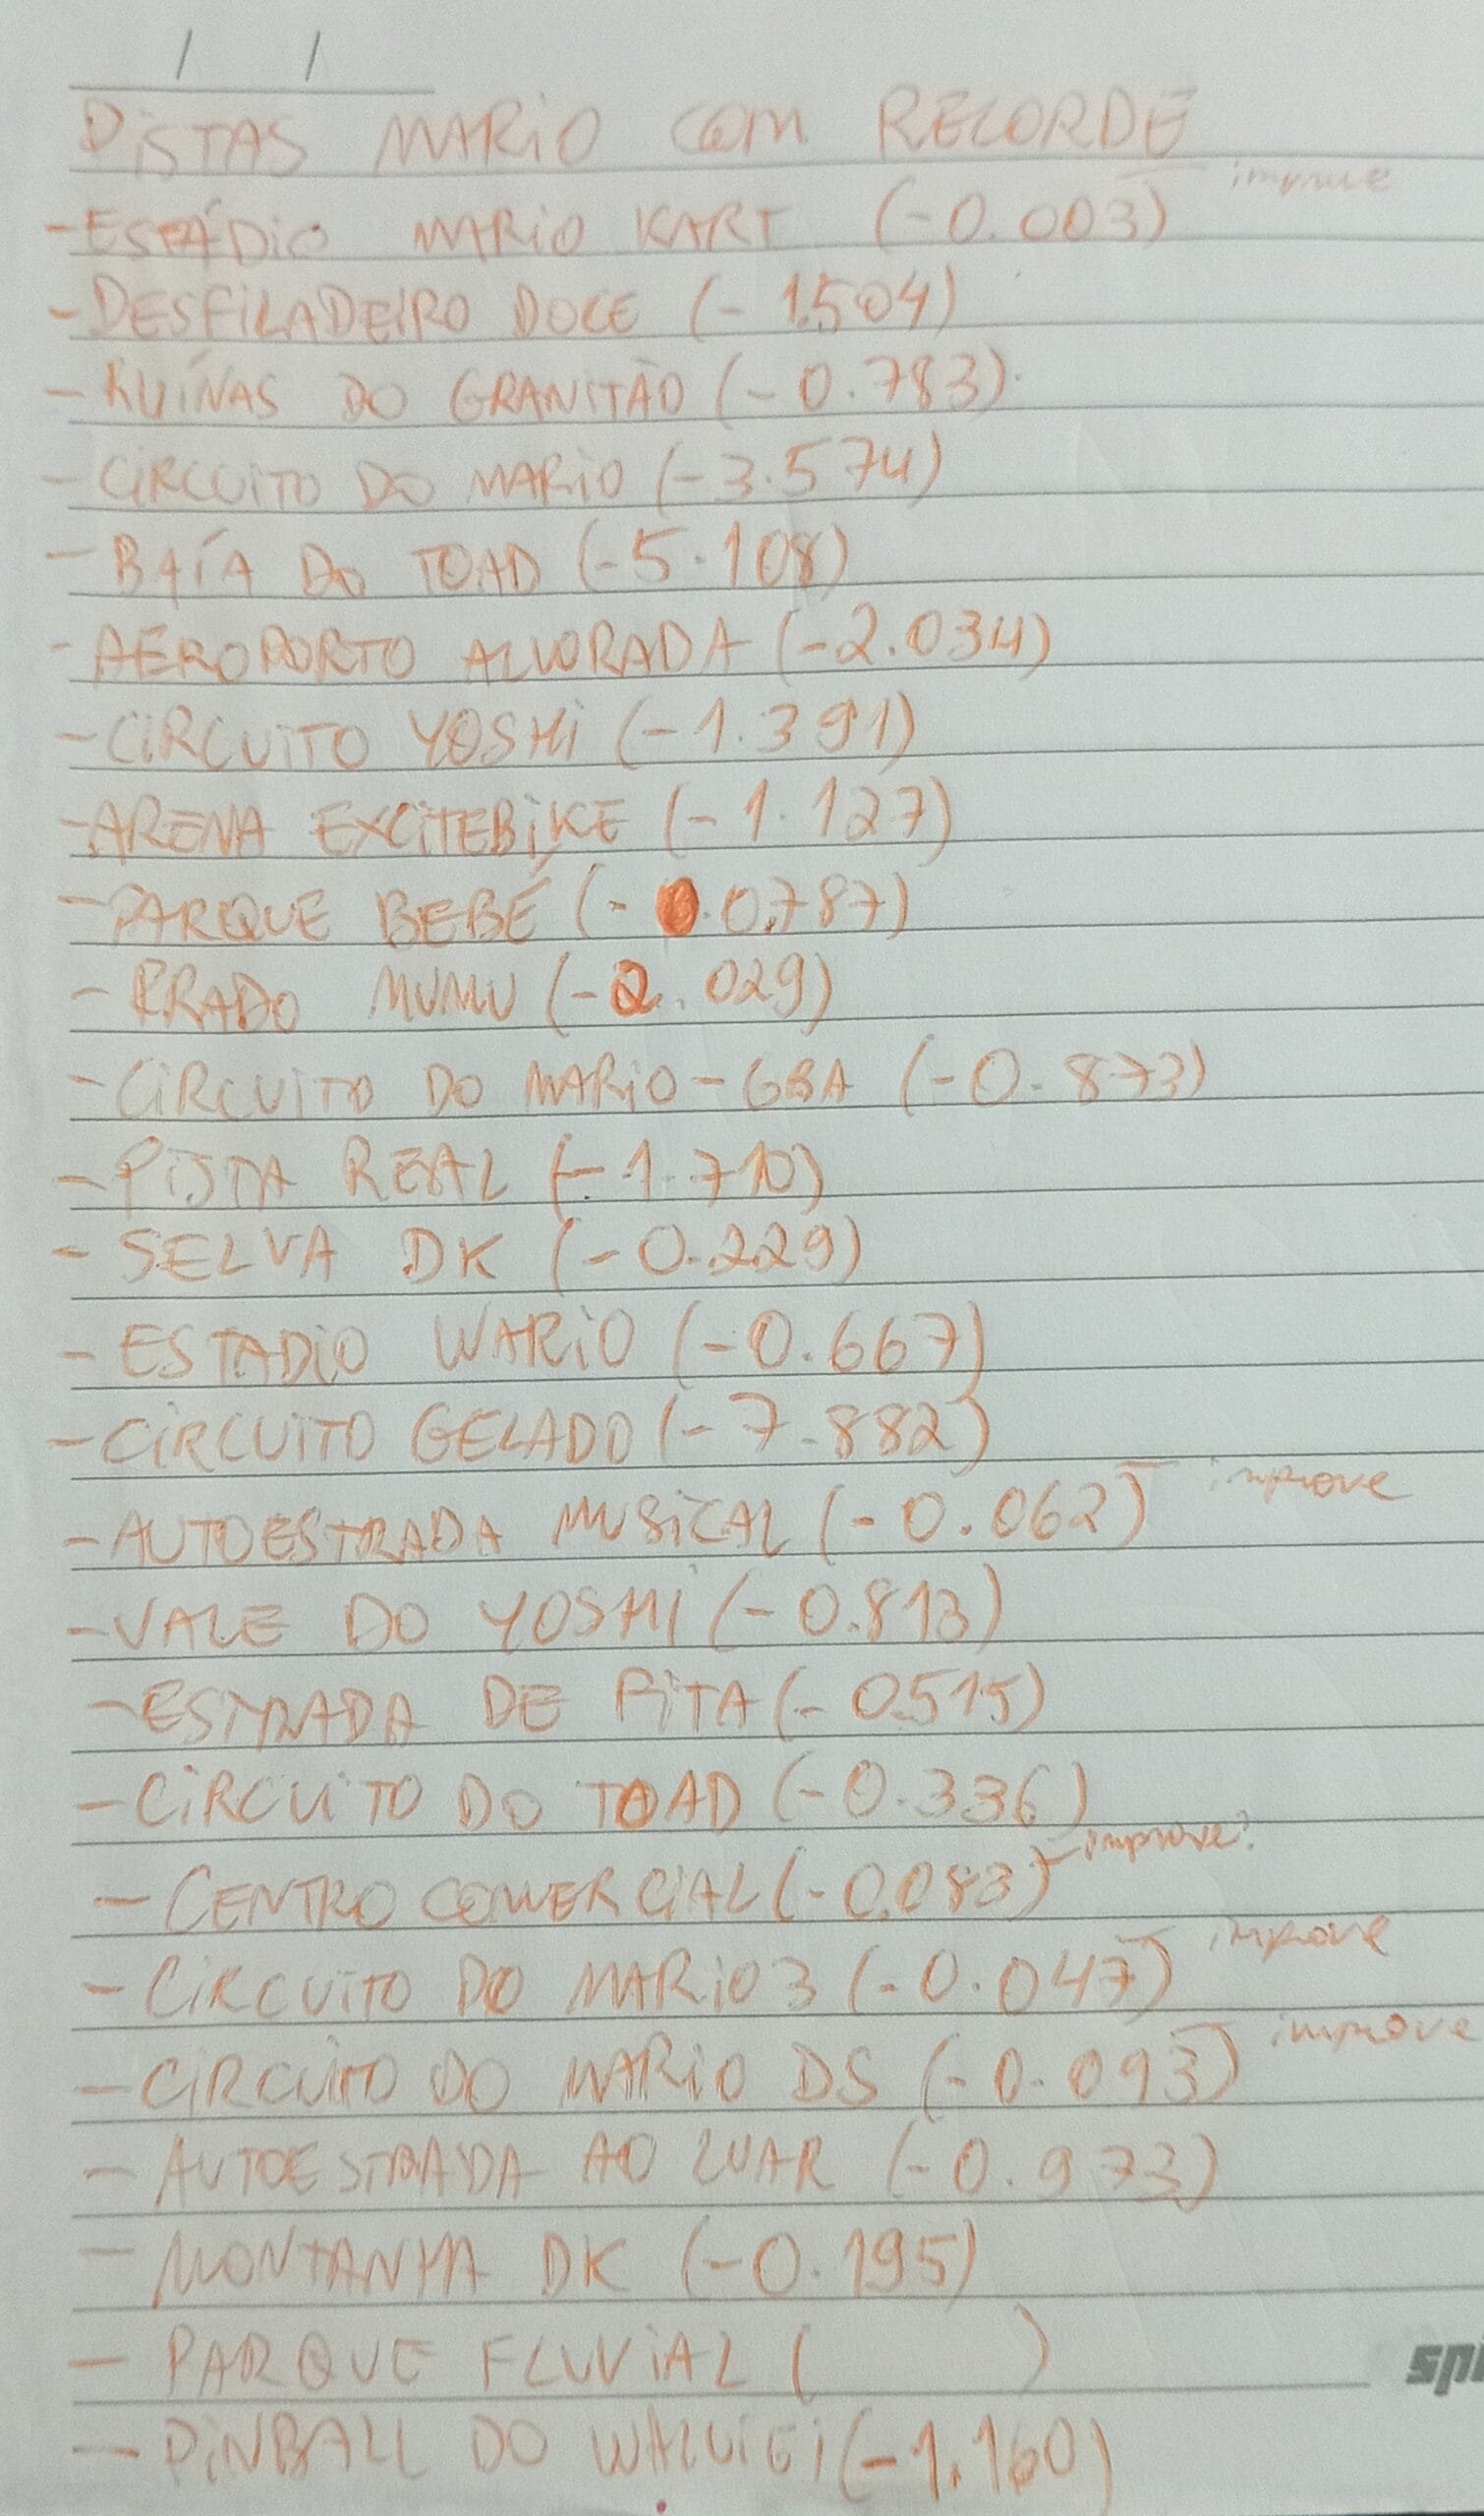 / /
PISTAS MARIO COM RECORDE
- ESTÁDIO MARIO KART (-0.003) improve
- DESFILADEIRO DOCE (-1.504)
- RUÍNAS DO GRANITÃO (-0.783)
- CIRCUITO DO MARIO (-3.574)
- BAÍA DO TOAD (-5.108)
- AEROPORTO ALVORADA (-2.034)
- CIRCUITO YOSHI (-1.391)
- ARENA EXCITEBIKE (-1.127)
- PARQUE BEBÉ (- 0.787)
- PRADO MUMU (-2.029)
- CIRCUITO DO MARIO-GBA (-0.873)
- PISTA REAL (-1.710)
- SELVA DK (-0.229)
- ESTADIO WARIO (-0.667)
- CIRCUITO GELADO (-7.882)
- AUTOESTRADA MUSICAL (-0.062) improve
- VALE DO YOSHI (-0.813)
- ESTRADA DE FITA (-0.515)
- CIRCUITO DO TOAD (-0.336)
- CENTRO COMERCIAL (-0.083) improve?
- CIRCUITO DO MARIO 3 (-0.047) improve
- CIRCUITO DO MARIO DS (-0.093) improve
- AUTOESTRADA AO LUAR (-0.973)
- MONTANHA DK (-0.195)
- PARQUE FLUVIAL ( )
- PINBALL DO WALUIGI (-1.160)